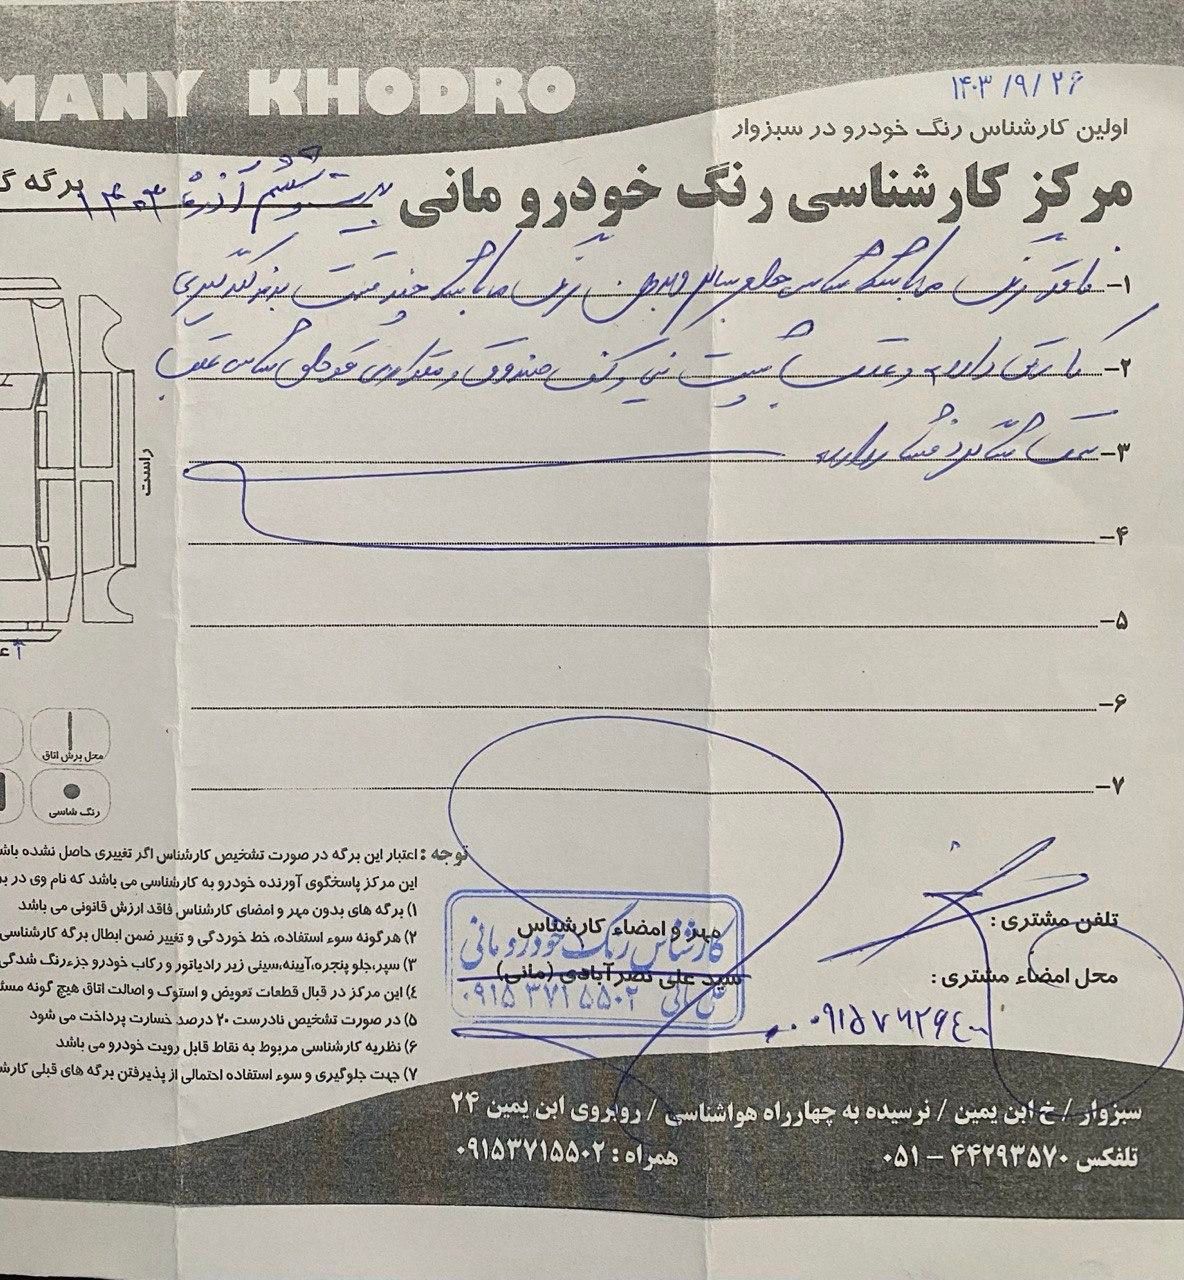 MANY KHODRO
۱۴۰۳/۹/۲۶
اولین کارشناس رنگ خودرو در سبزوار
مرکز کارشناسی رنگ خودرو مانی
برگه
بیست و ششم آذر ۱۴۰۳
۱- فاقد رنگ میباشد شاسی جلو سالم و بدون رنگ میباشد چند قسمت بدنه لکه گیری
۲- کارتن دارد و عقب پشت نی و کف صندوق و مقداری قوطی شاسی عقب
۳- سمت شاگرد فشار دارد
۴-
۵-
۶-
۷-
راست
محل برش اتاق
رنگ شاسی
توجه : اعتبار این برگه در صورت تشخیص کارشناس اگر تغییری حاصل نشده
این مرکز پاسخگوی آورنده خودرو به کارشناسی می باشد که نام وی در
۱) برگه های بدون مهر و امضای کارشناس فاقد ارزش قانونی می باشد
۲) هرگونه سوء استفاده، خط خوردگی و تغییر ضمن ابطال برگه کارشناسی
۳) سپر،جلو پنجره،آیینه،سینی زیر رادیاتور و رکاب خودرو جزءرنگ شدگی
٤) این مرکز در قبال قطعات تعویض و استوک و اصالت اتاق هیچ گونه
۵) در صورت تشخیص نادرست ۲۰ درصد خسارت پرداخت می شود
۶) نظریه کارشناسی مربوط به نقاط قابل رویت خودرو می باشد
۷) جهت جلوگیری و سوء استفاده احتمالی از پذیرفتن برگه های قبلی
مهر و امضاء کارشناس
سید علی نصرآبادی (مانی)
کارشناس رنگ خودرو مانی
علی مانی ۰۹۱۵۳۷۱۵۵۰۲
تلفن مشتری :
محل امضاء مشتری :
سبزوار / خ ابن یمین / نرسیده به چهارراه هواشناسی / روبروی ابن یمین ۲۴
تلفکس ۴۴۲۹۳۵۷۰ – ۰۵۱
همراه : ۰۹۱۵۳۷۱۵۵۰۲